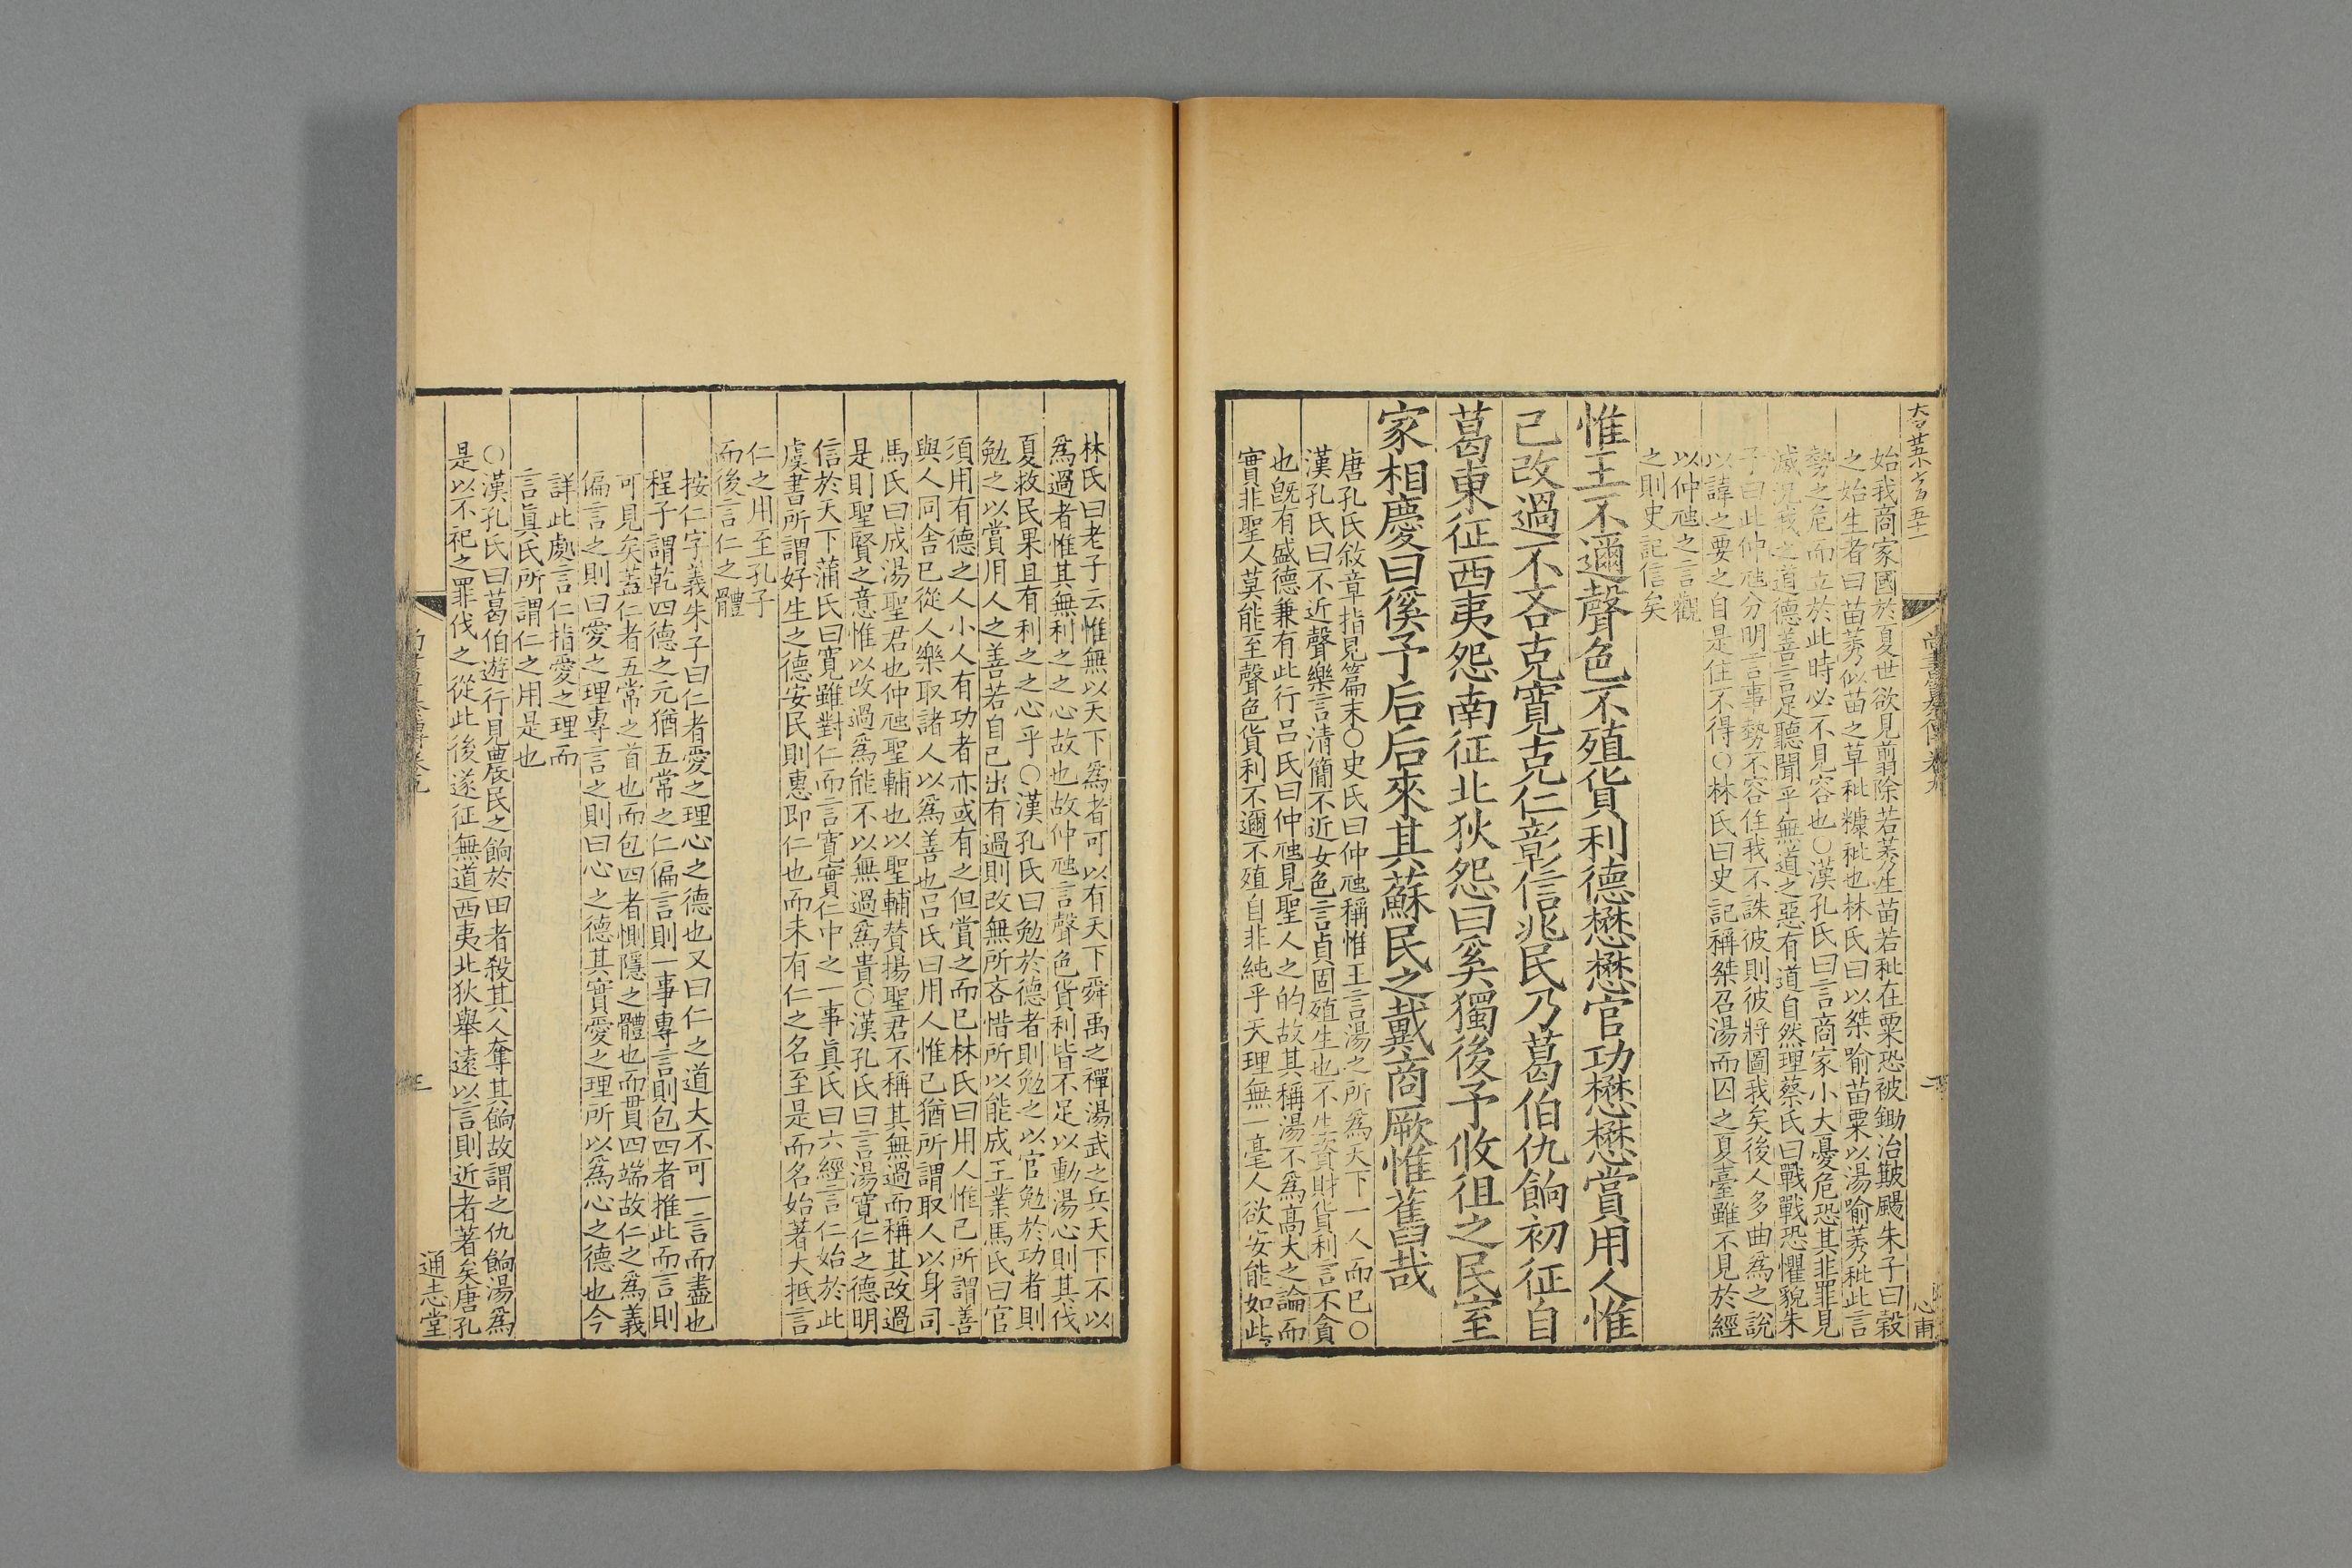 始我商家國於夏世欲見翦除若莠生苗若秕在粟恐被鋤治簸颺朱子曰穀
之始生者曰苗莠似苗之草秕糠秕也林氏曰以桀喻苗粟以湯喻莠秕此言
勢之危而立於此時必不見容也〇漢孔氏曰言商家小大憂危恐其非罪見
滅況我之道德善言足聽聞乎無道之惡有道自然理蔡氏曰戰戰恐懼貌朱
子曰此仲虺分明言事勢不容住我不誅彼則彼將圖我矣後人多曲爲之說
以諱之要之自是住不得〇林氏曰史記稱桀召湯而囚之夏臺雖不見於經
以仲虺之言觀
之則史記信矣
惟王不邇聲色不殖貨利德懋懋官功懋懋賞用人惟
己改過不吝克寬克仁彰信兆民乃葛伯仇餉初征自
葛東征西夷怨南征北狄怨曰奚獨後予攸徂之民室
家相慶曰徯予后后來其蘇民之戴商厥惟舊哉
唐孔氏敘章指見篇末〇史氏曰仲虺稱惟王言湯之所爲天下一人而已〇
漢孔氏曰不近聲樂言清簡不近女色言貞固殖生也不生資財貨利言不貪
也旣有盛德兼有此行呂氏曰仲虺見聖人之的故其稱湯不爲高大之論而
實非聖人莫能至聲色貨利不邇不殖自非純乎天理無一毫人欲安能如此
林氏曰老子云惟無以天下爲者可以有天下舜禹之禪湯武之兵天下不以
爲過者惟其無利之之心故也故仲虺言聲色貨利皆不足以動湯心則其伐
夏救民果且有利之之心乎〇漢孔氏曰勉於德者則勉之以官勉於功者則
勉之以賞用人之善若自己出有過則改無所吝惜所以能成王業馬氏曰官
須用有德之人小人有功者亦或有之但賞之而已林氏曰用人惟己所謂善
與人同舍已從人樂取諸人以爲善也呂氏曰用人惟己猶所謂取人以身司
馬氏曰成湯聖君也仲虺聖輔也以聖輔贊揚聖君不稱其無過而稱其改過
是則聖賢之意惟以改過爲能不以無過爲貴〇漢孔氏曰言湯寬仁之德明
信於天下蒲氏曰寬雖對仁而言寬實仁中之一事眞氏曰六經言仁始於此
虞書所謂好生之德安民則惠即仁也而未有仁之名至是而名始著大抵言
仁之用至孔子
而後言仁之體
按仁字義朱子曰仁者愛之理心之德也又曰仁之道大不可一言而盡也
程子謂乾四德之元猶五常之仁偏言則一事專言則包四者推此而言則
可見矣蓋仁者五常之首也而包四者惻隱之體也而貫四端故仁之爲義
偏言之則曰愛之理專言之則曰心之德其實愛之理所以爲心之德也今
詳此處言仁指愛之理而
言眞氏所謂仁之用是也
〇漢孔氏曰葛伯遊行見農民之餉於田者殺其人奪其餉故謂之仇餉湯爲
是以不祀之罪伐之從此後遂征無道西夷北狄舉遠以言則近者著矣唐孔
通志堂